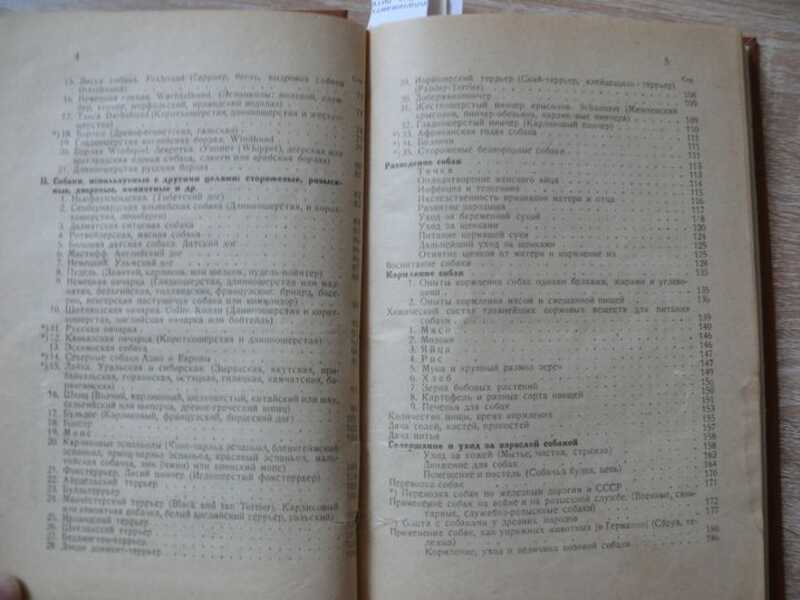 4
15. Лисья собака. Foxhound (Гарриер, бигль, выдровая собака
16. Немецкая гончая. Wachtelhund.
17. Такса Dachshund (Короткошерстая, длинношерстая и жестко-
шерстая)
*) 18. Борзая (Древнеегипетская, галльская)
19. Гладкошерстая английская борзая. Windhund
20. Борзая Windspiel. левретка (Уиппет (Whippet),
21. Длинношерстая русская борзая
II. Собаки, используемые с другими целями: сторожевые, розыск-
ные, дворовые, комнатные и др.
1. Ньюфаундлендская (Тибетский дог)
2. Сенбернардская альпийская собака (Длинношерстая и корот-
кошерстная, леонберг)
3. Далматская ситцевая собака
4. Ротвейлерская, мясная собака
5. Большая датская собака. Датский дог
6. Мастифф. Английский дог
7. Немецкий. Ульмский дог
8. Пудель. (Завитой, карликов. или шелков., пудель-пойнтер)
9. Немецкая овчарка (Гладкошерстая, длинношерстая или мад-
ярская, бельгийская, голландская, французские: бриард, босе-
рон, венгерская пастушечья собака или комондор)
10. Шотландская овчарка. Collie. Колли (Длинношерстая и корот-
кошерстая, английская овчарка или бобтейль)
*) 11. Русская овчарка
*) 12. Кавказская овчарка (Короткошерстая и длинношерстая)
13. Эскимосская собака
*) 14. Северные собаки Азии и Европы
*) 15. Лайка. Уральская и сибирская (Зырянская, якутская, при-
байкальская, горинская, остяцкая, гиляцкая, камчатская, ба-
16. Шпиц (Волчий, карликовый, шелковистый, китайский или чау,
сальгейский или шиперка, древне-греческий шпиц)
17. Бульдог (Карликовый, французский, бордоский дог)
18. Боксер
19. Мопс
20. Карликовые эспаньолы (Кинг-чарльз эспаньол, бленгеймский
эспаньол, принц-чарльз эспаньол, красный эспаньол, маль-
тийская собачка, или (чини) или японский мопс)
21. Фокстерьер. Лисий пинчер (Иглошерстый фокстерьер)
22. Айрдельский терьер
23. Бультерьер
24. Манчестерский терьер (Black and tan Terrier). Карликовый
или комнатная собачка, белый английский терьер, уэльский)
25. Ирландский терьер
26. Шотландский терьер
27. Бедлингтон-терьер
28. Дэнди динмонт-терьер
5
Стр.
29. Норвичский терьер (Скай-терьер, клейдесдаль-терьер)
108
30. Доберманпинчер
109
31. Жесткошерстый пинчер крысолов. Schnauzer (Мюнхенский
крысолов, пинчер-обезьянка, карликовые пинчера)
109
32. Гладкошерстый пинчер (Карликовый пинчер)
110
*) 33. Африканская голая собака
111
*) 34. Балинки
111
*) 35. Сторожевые беспородные собаки
111
Разведение собак
113
Течка
113
Оплодотворение женского яйца
113
Инфекция и телегония
115
Наследственность признаков матери и отца
116
Развитие зародыша
117
Уход за беременной сукой
118
Уход за щенками
120
Питание кормящей суки
125
Дальнейший уход за щенками
125
Отнятие щенков от матери и кормление их
125
Воспитание собаки
128
Кормление собак
135
1. Опыты кормления собак одними белками, жирами и углево-
дами
135
2. Опыты кормления мясом и смешанной пищей
136
Химический состав главнейших кормовых веществ для питания
собаки
139
1. Мясо
140
2. Молоко
146
3. Яйца
147
4. Рис
147
5. Мука и крупный размол зерен
147
6. Хлеб
150
7. Зерна бобовых растений
151
8. Картофель и разные сорта овощей
151
9. Печенья для собак
153
Количество пищи, время кормления
155
Дача солей, костей, пряностей
157
Дача питья
158
Содержание и уход за взрослой собакой
158
Уход за кожей (Мытье, чистка, стрижка)
163
Движение для собак
164
Помещение и постель (Собачья будка, цепь)
170
Перевозка собак
171
*) Перевозка собак по железным дорогам в СССР
Применение собак на войне и на розыскной службе. (Военные, сани-
172
тарные, служебно-розыскные собаки)
177
*) Охота с собаками у древних народов
Применение собак, как упряжных животных [в Германии] (Сбруя, те-
186
лежка)
186
Кормление, уход и величина возовой собаки